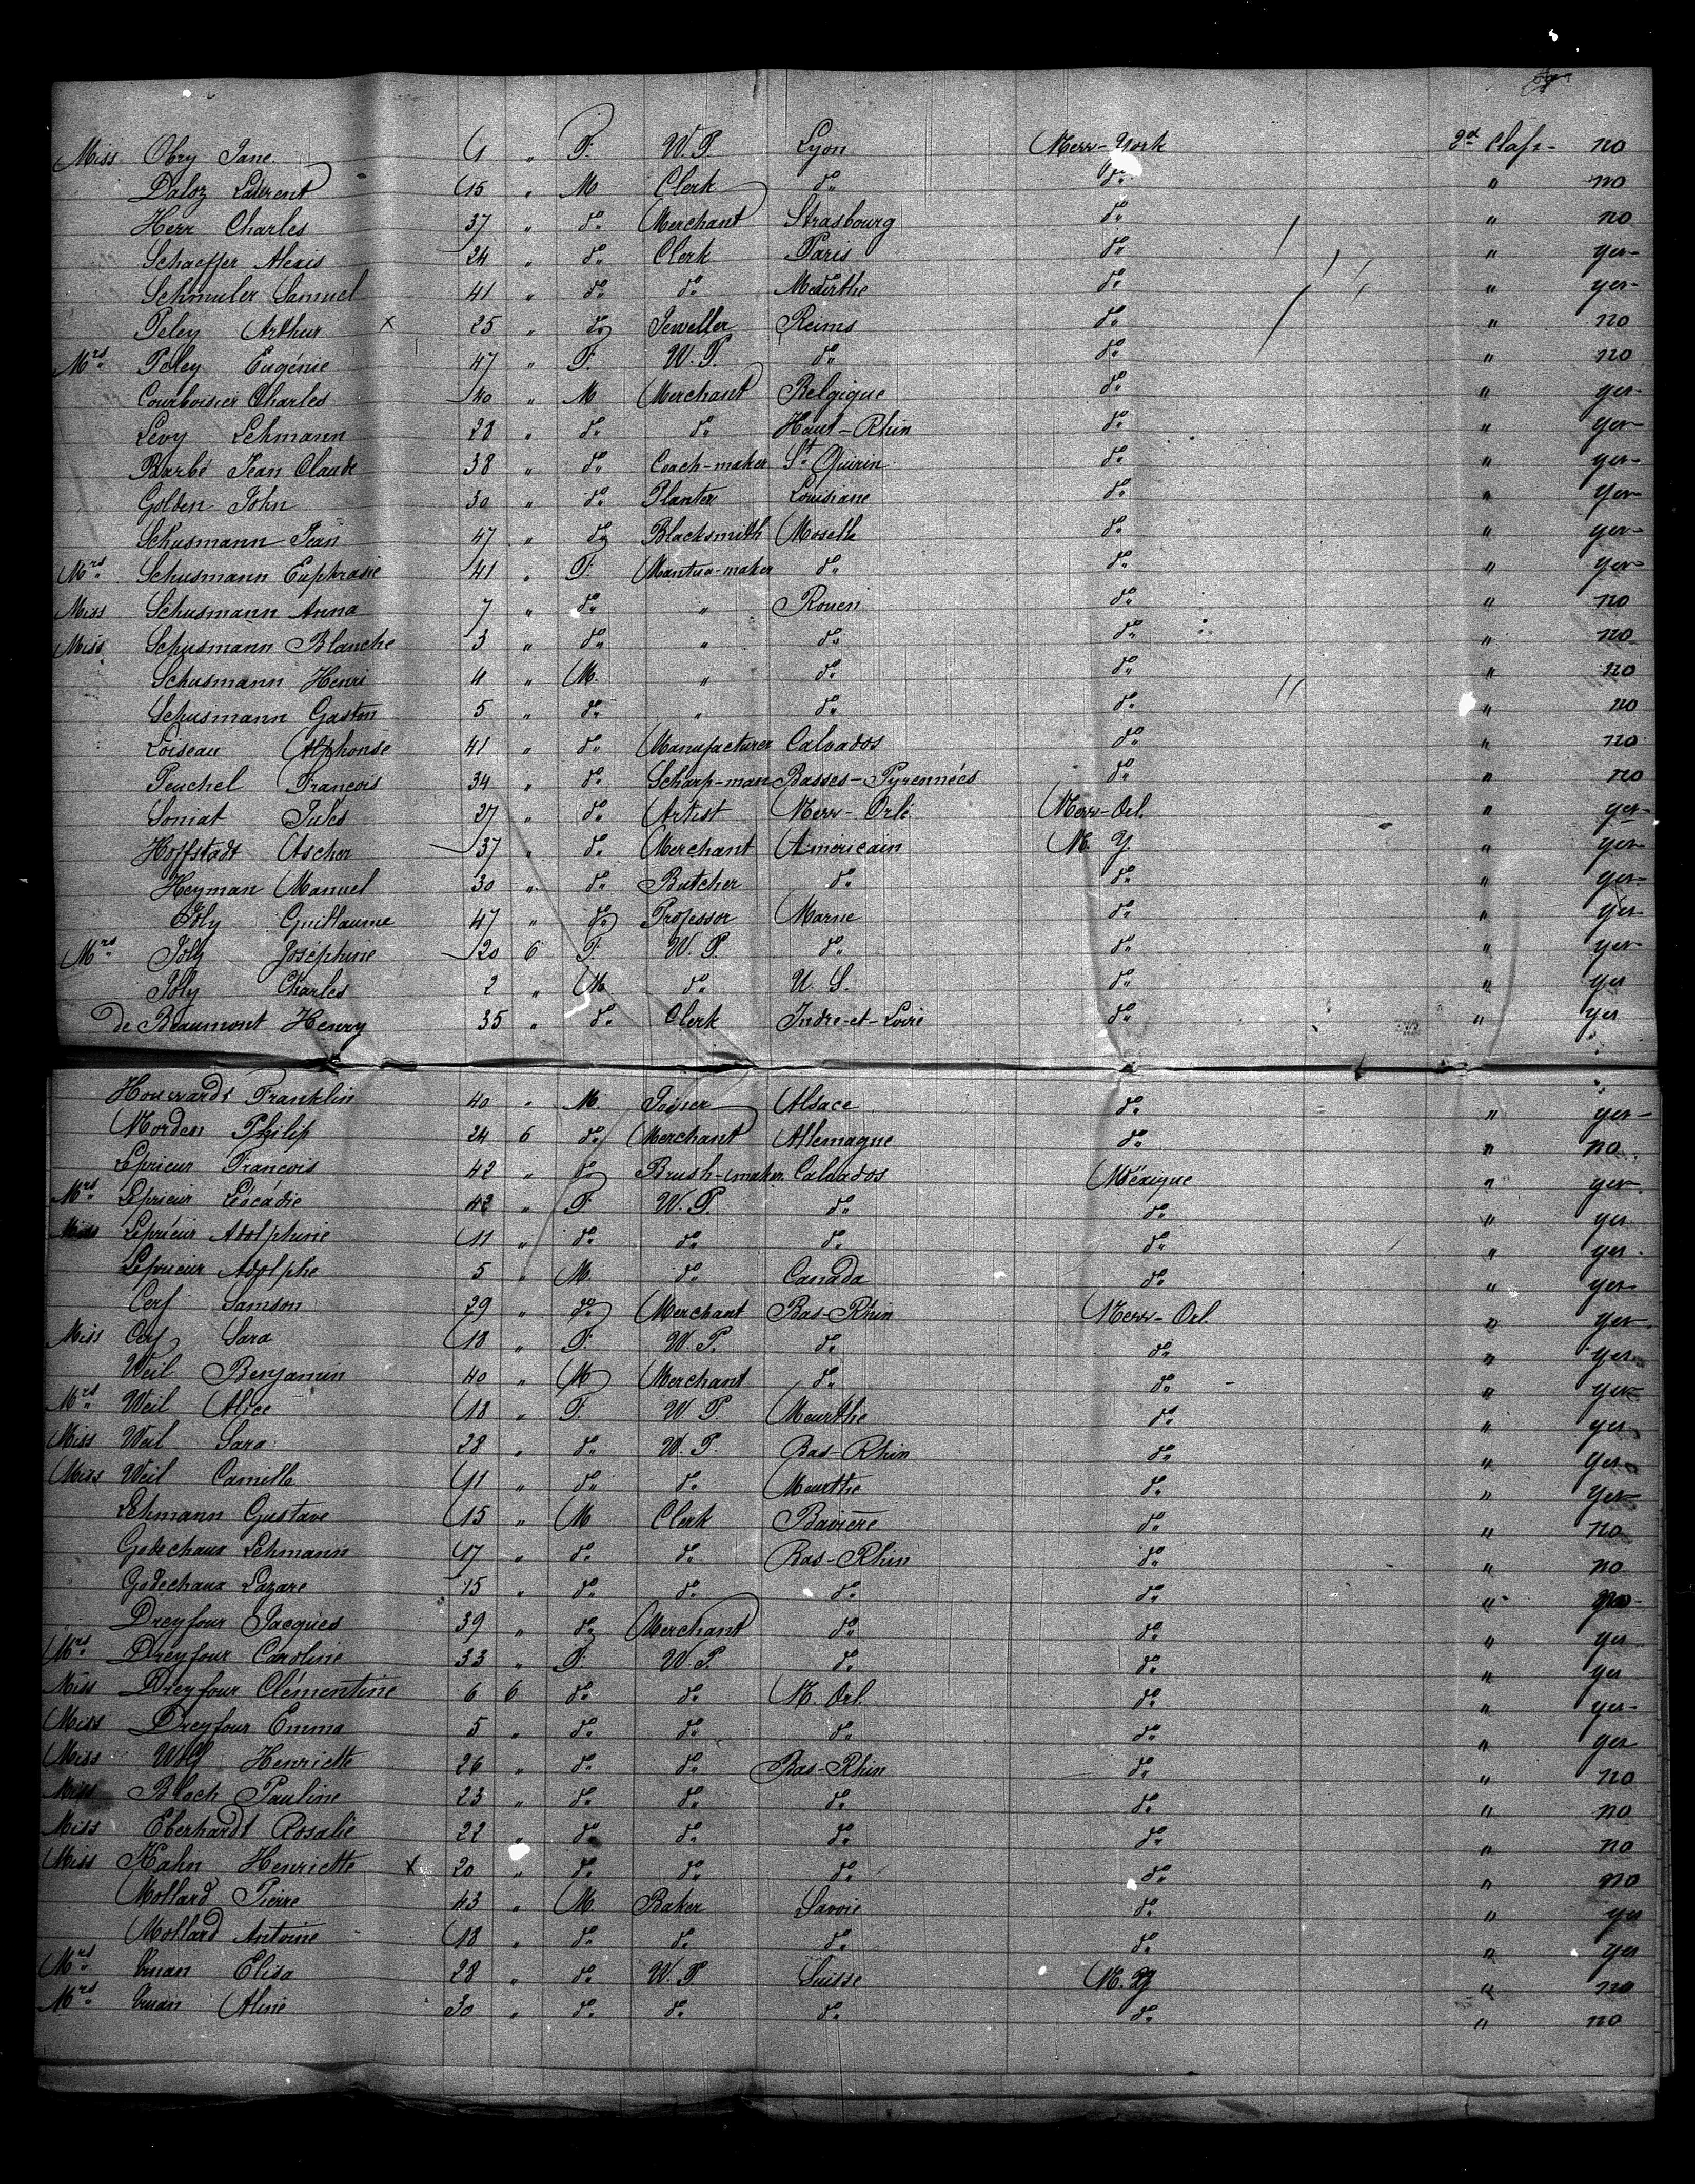 Miss Obry Jane 6 " F. W.P. Lyon New-York 2d Class - no
Daloz Laurent 15 " M Clerk do do " no
Herr Charles 37 " do Merchant Strasbourg do " no
Schaeffer Alexis 24 " do Clerk Paris do " yes-
Schmuler Samuel 41 " do do Meurthe do " yes-
Peley Arthur x 25 " do Jeweller Reims do " no
Mrs Peley Eugénie 47 " F. W.P. do do " no
Courboisier Charles 40 " M Merchant Belgique do " yes-
Levy Lehmann 28 " do do Haut-Rhin do " yes-
Barbé Jean Claude 38 " do Coach-maker St Quirin do " yes-
Golden John 30 " do Planter Louisiane do " yes-
Schusmann Jean 47 " do Blacksmith Moselle do " yes-
Mrs Schusmann Euphrasie 41 " F. Mantua-maker do do " yes-
Miss Schusmann Anna 7 " do " Rouen do " no
Miss Schusmann Blanche 3 " do " do do " no
Schusmann Henri 4 " M. " do do " no
Schusmann Gaston 5 " do " do do " no
Loiseau Alphonse 41 " do Manufacturer Calvados do " no
Peuchel Francois 34 " do Scharp-man Basses-Pyrennées do " no
Soniat Jules 27 " do Artist New-Orlé. New-Orl. " yes-
Hoffstadt Ascher 37 " do Merchant Américain N. Y. " yes-
Heyman Manuel 30 " do Butcher do do " yes-
Joly Guillaume 47 " do Professor Marne do " yes
Mrs Joly Joséphine 20 6 F. W.P. do do " yes-
Joly Charles 2 " M do U. S. do " yes
de Beaumont Henry 35 " do Clerk Indre-et-Loire do " yes
Houwardt Franklin 40 " M. Joiner Alsace do " yes-
Morden Philip 24 6 do Merchant Allemagne do " no
Leprieur Francois 42 " do Brush-maker Calvados Méxique " yes
Mrs Leprieur Léocadie 42 " F. W.P. do do " yes
Miss Leprieur Adolphine 11 " do do do do " yes
Leprieur Adolphe 5 " M. do Canada do " yes
Cerf Samson 29 " do Merchant Bas-Rhin New-Orl. " yes
Miss Cerf Sara 18 " F. W.P. do do " yes
Weil Benjamin 40 " M Merchant do do " yes
Mrs Weil Alice 18 " F. W.P. Meurthe do " yes
Miss Weil Sara 28 " do W.P. Bas-Rhin do " yes
Miss Weil Camille 11 " do do Meurthe do " yes
Lehmann Gustave 15 " M Clerk Bavière do " no
Godechaux Lehmann 17 " do do Bas-Rhin do " no
Godechaux Lazare 15 " do do do do " no
Dreyfour Jacques 39 " do Merchant do do " yes
Mrs Dreyfour Caroline 33 " F. W.P. do do " yes
Miss Dreyfour Clémentine 6 6 do do N. Orl. do " yes-
Miss Dreyfour Emma 5 " do do do do " yes
Miss Wolf Henriette 26 " do do Bas-Rhin do " no
Miss Bloch Pauline 23 " do do do do " no
Miss Eberhardt Rosalie 22 " do do do do " no
Miss Kahn Henriette x 20 " do do do do " no
Mollard Pierre 43 " M. Baker Savoie do " yes
Mollard Antoine 18 " do do do do " yes
Mrs Elisa 28 " do W.P Suisse N. Y " no
Mrs Aline 30 " do do do do " no